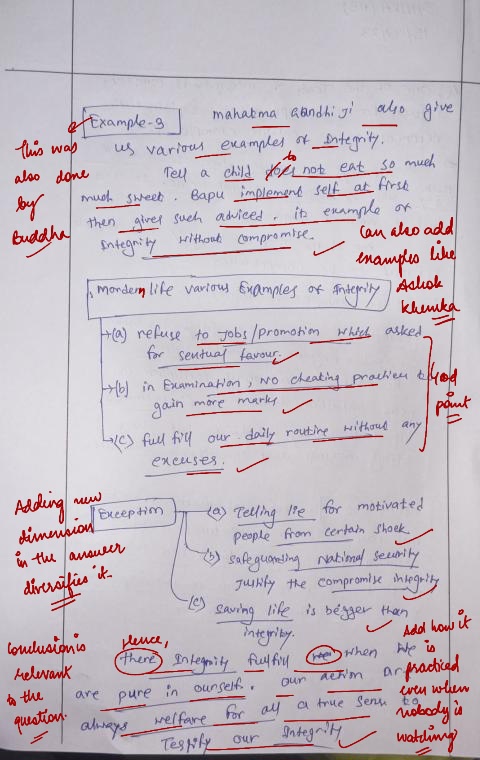 Example-3
mahatma Gandhi Ji also give
us various examples of Integrity.
Tell a child does not eat so much
to
much sweet. Bapu implement self at first
then gives such adviced. its example of
Integrity without compromise.
This was
also done
by
Buddha
Can also add
examples like
Ashok
Khemka
Mondern life various Examples of Integrity
(a) refuse to Jobs/promotion which asked
for sextual favour.
(b) in Examination, NO cheating practice to
gain more marks
(c) full fill our daily routine without any
excuses.
Good
point
Adding new
dimension
in the answer
diversifies it.
Exception
(a) Telling lie for motivated
people from certain shock
(b) safeguarding National security
Justify the compromise integrity
(c) saving life is begger than
integrity.
Conclusion is
relevant
to the
question.
Hence,
there Integrity fulfill when we
are pure in ourself. our action are
always welfare for all a true sense to
Testify our Integrity
Add how it
is
practiced
even when
nobody is
watching